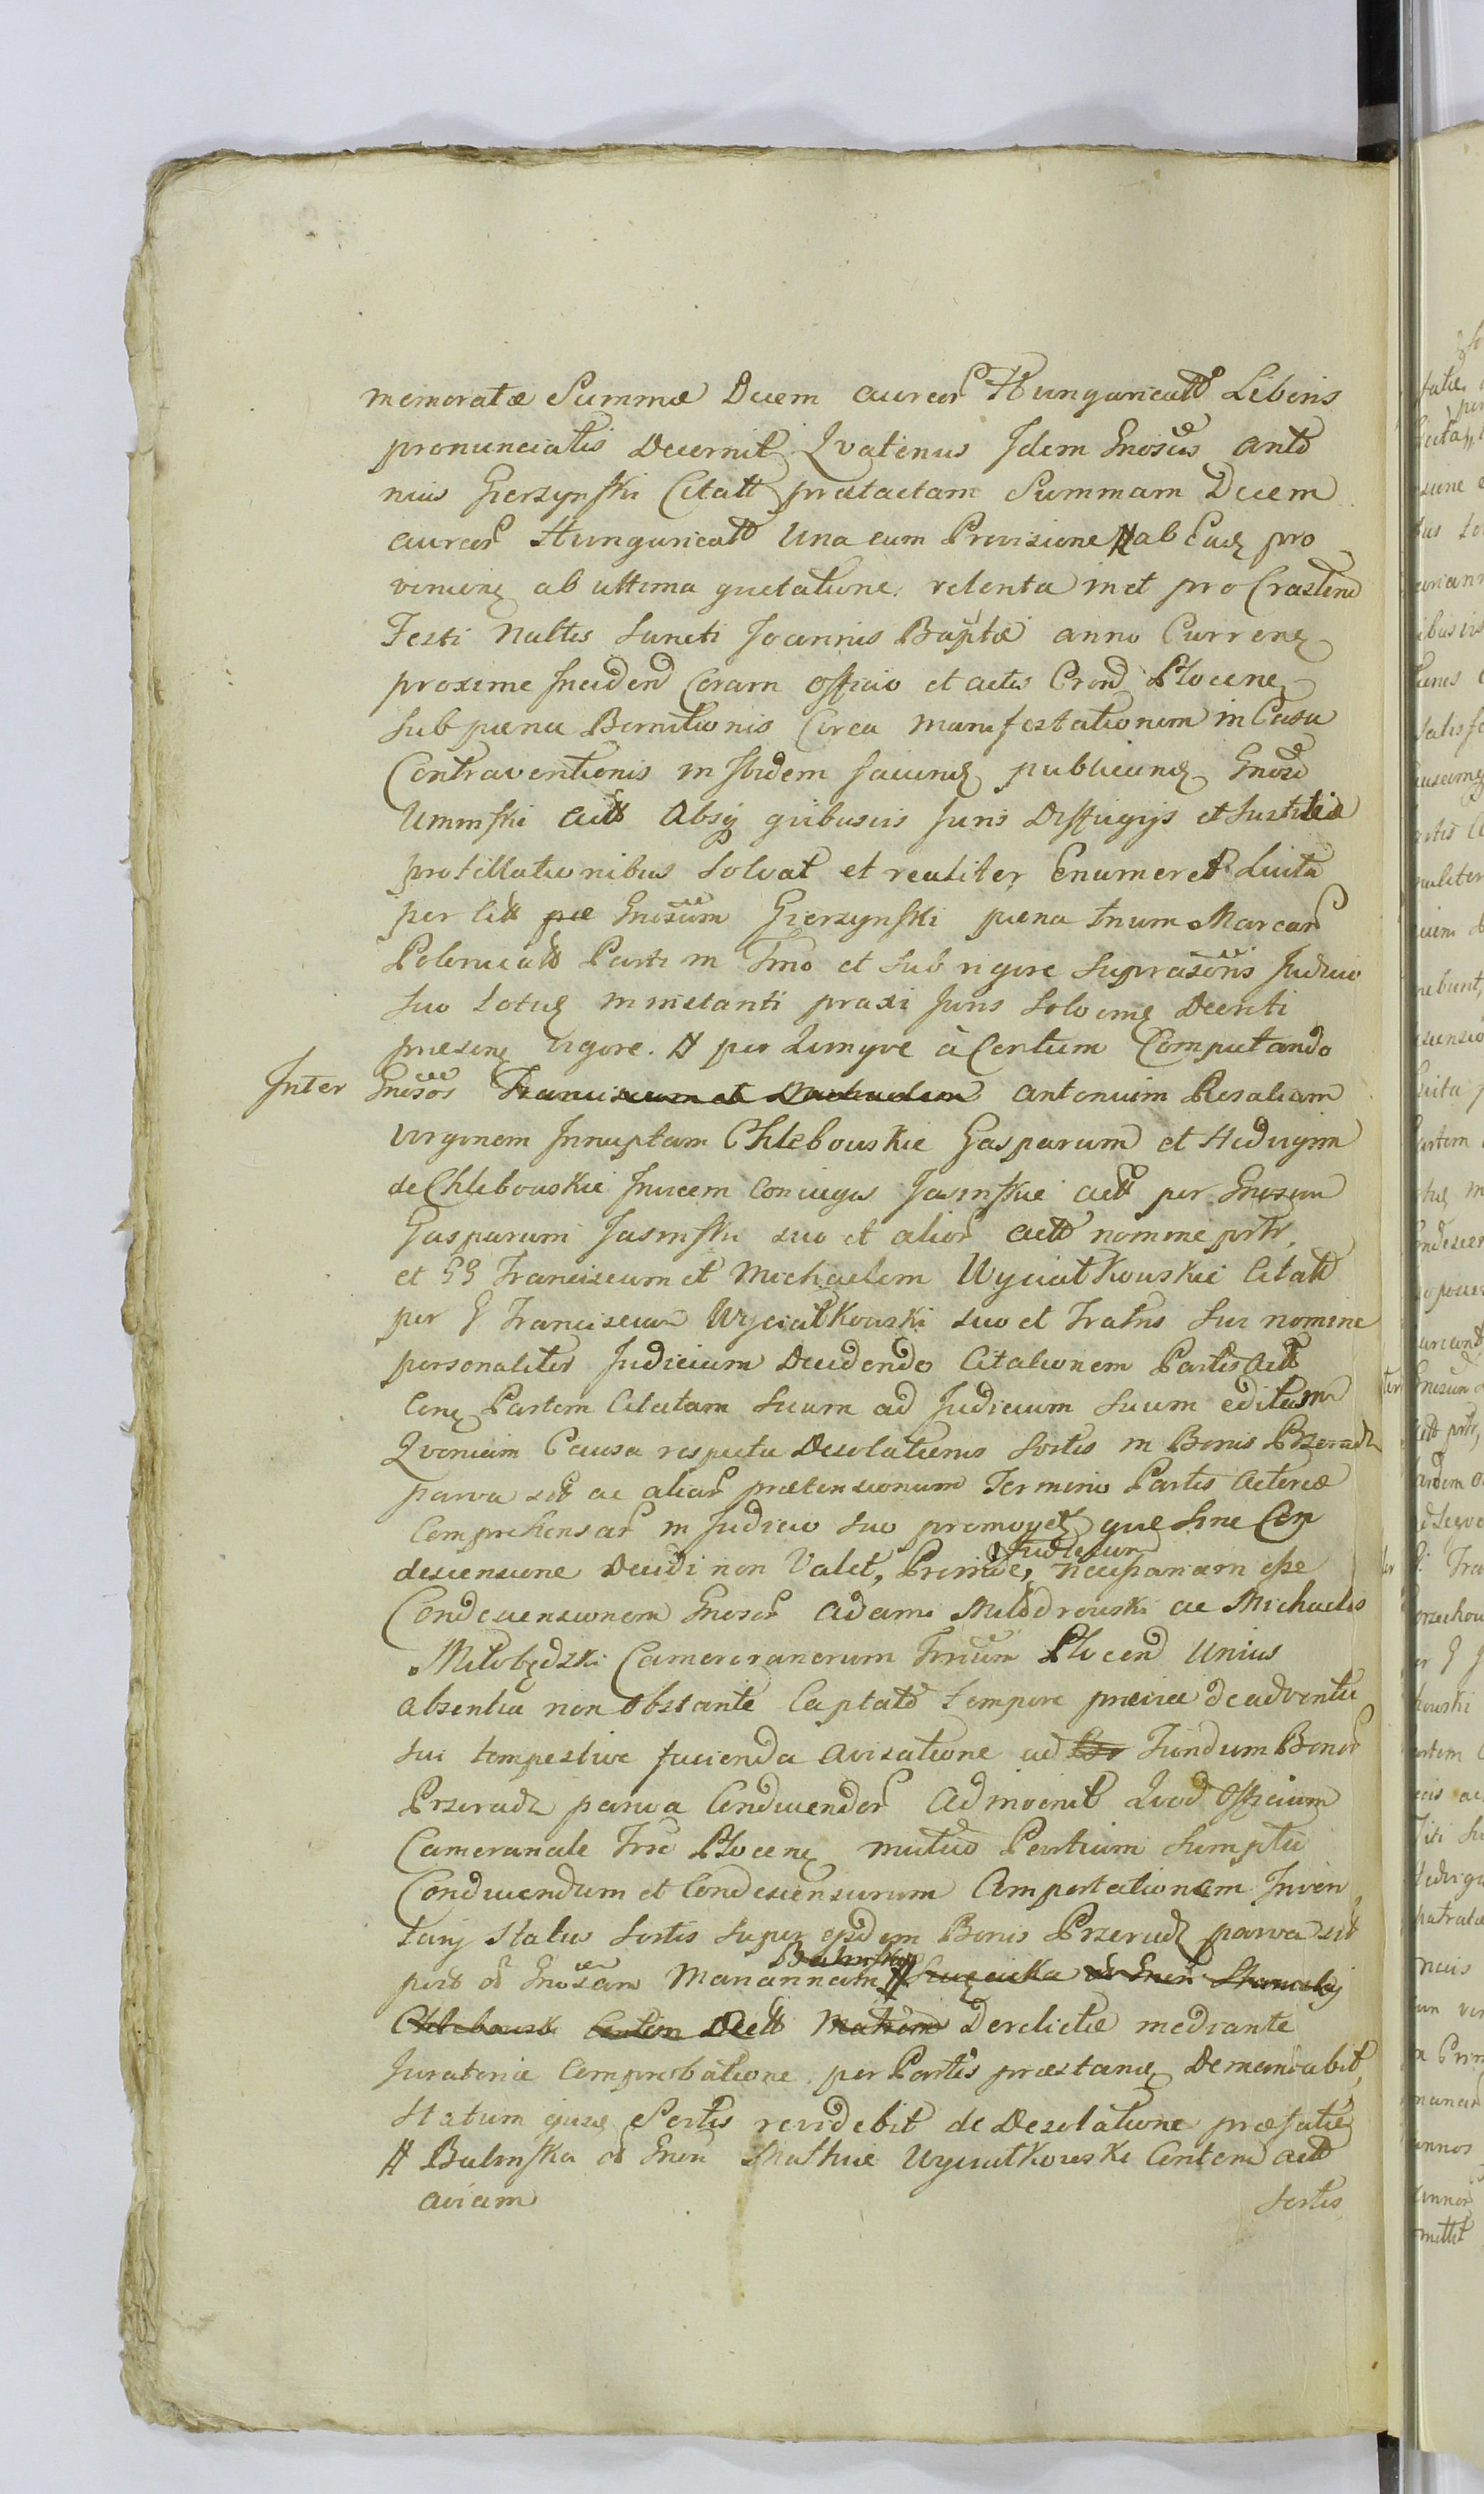 memoratæ Summæ Decem aureor Hungaricall Liberis
pronunciatis Decernit Qvatenus Idem Gnosus Anto
nius Gierzynski Citatt prætactam Summam Decem
aureor Hungaricall Una cum Provisione # ab Ead pro
venien ab ultima quietatione retenta in et pro Crastino
Festi Naltis Sancti Joannis Baptæ anno Curren
proxime Inciden Coram Officio et actis Crond Plocen
Sub pæna Bannitionis Circa manifestationem in Casu
Contraventionis in Ibidem faciend publicand Gnoso
Uminski actt Absq quibusvis Juris Diffugijs et Justitiæ
protillationibus Solvat et realiter Enumeret Luita
per Citt Gnosum Gierzynski pæna trium Marcar
Polonicall Parti in Tmo et Sub rigore Suprasõris Judicio
Suo totid in instanti praxi Juris Solven Decreti
præsen vigore. # per Quinque à Centum Computando
Inter Gnosos Franciscum et Michaelem Antonium Rosaliam
Virginem Innuptam Chlebowskie Gasparum et Hedvigim
de Chlebowskie Invicem Coniuges Jasinskie actt per Gnosum
Gasparum Jasinski suo et alior actt nomine prtr,
et GG Franciscum et Michaelem Wyciatkowskie Citatt
per G Franciscum Wyciatkowski suo et Fratris Sui nomine
personaliter Judicium Decidendo Citationem Partis Actt
Cen Partem Citatam Suum ad Judicium Suum editam
Qvoniam Causa respectu Desolationis Sortis in Bonis Przeradz
parva sit ac aliar prætensionum Termino Partis Actoreæ
Comprehensar in Judicio Suo promovet que Sine Con
descensione Decidi non Valet, Proinde, Judicium necessariam esse
Condescensionem Gnosor Adami Milodrowski ac Michaelis
Milobędzki Camerariorum Trrium Plocen Unius
absentia non obstante Captato tempore prævia de adventu
sui tempestive facienda avisatione ad Fundum Bonor
Przeradz parva Conducendor Adinvenit Quod Officium
Camerariale Trrae Plocen mutuo Partium Sumptu
Conducendum et Condescensurum Comportationem Inven
tarij Status Sortis Super ijsdem Bonis Przeradz parva sit
post od Gnosam Mariannam Balinska #
Chlebowsk Derelictæ mediante
Juratoria Comprobatione per Partes præstand Demandabit,
Statum ejusd Sortis revidebit de Desolatione præfatæ
# Balinska od Gnen Mathiæ Wyciatkowski Contem actt
aviam
Sortis